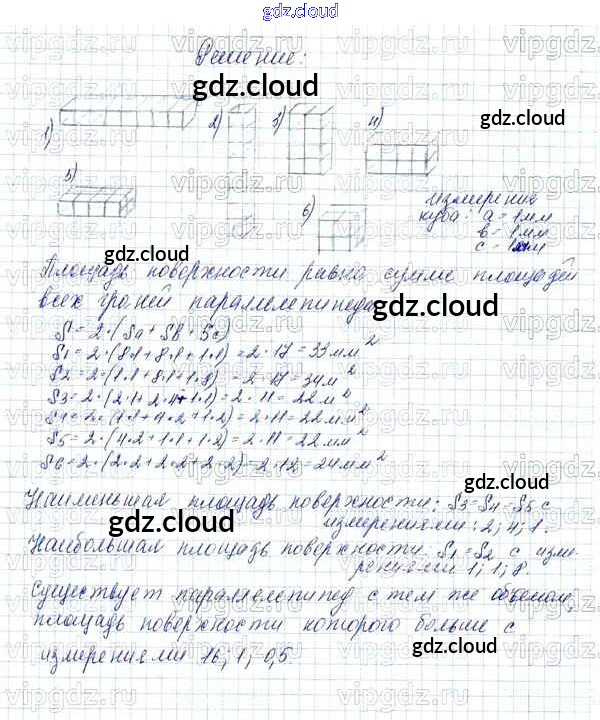 gdz.cloud
Решение:
1) 2) 3) 4)
5) 6)
измерение
куба: a = 1мм
в = 1мм
с = 1мм
Площадь поверхности равна сумме площадей
всех граней параллелепипеда
S = 2·(Sa + Sb + Sc)
S1 = 2·(8·1+8·1+1·1) = 2·17 = 33мм²
S2 = 2·(1·1+8·1+1·8) = 2·17 = 34м²
S3 = 2·(2·1+2·4+1·1) = 2·11 = 22м²
= 2·11 = 22мм²
S5 = 2·(4·2+1·1+1·2) = 2·11 = 22мм²
S6 = 2·(2·2+2·2+2·2) = 2·12 = 24мм²
Наименьшая площадь поверхности: S3=S4=S5 с
измерениями: 2; 4; 1.
Наибольшая площадь поверхности S1=S2 с изме-
рениями 1; 1; 8.
Существует параллелепипед с тем же объемом,
площадь поверхности которого больше с
измерениями 16; 1; 0,5